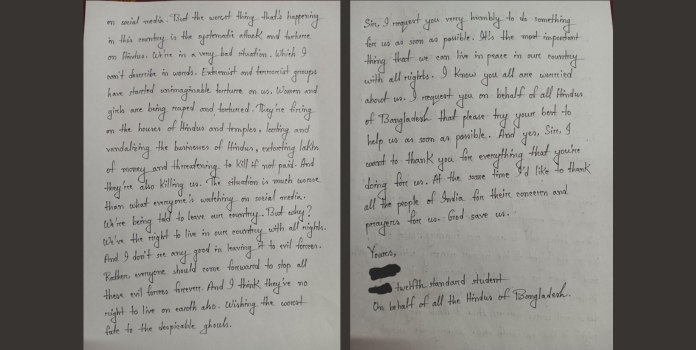 on social media. But the worst thing that's happening
in this country is the systematic attack and torture
on Hindus. We're in a very bad situation. Which I
can't describe in words. Extremist and terrorist groups
have started unimaginable torture on us. Women and
girls are being raped and tortured. They're firing
on the houses of Hindus and temples, looting and
vandalizing the businesses of Hindus, extorting lakhs
of money and threatening to kill if not paid. And
they're also killing us. The situation is much worse
than what everyone's watching on social media.
We're being told to leave our country. But why?
We've the right to live in our country with all rights.
And I don't see any good in leaving it to evil forces.
Rather, everyone should come forward to stop all
these evil forces forever. And I think they've no
right to live on earth also. Wishing the worst
fate to the despicable ghouls.
Sir, I request you very humbly to do something
for us as soon as possible. It's the most important
thing that we can live in peace in our country
with all rights. I know you all are worried
about us. I request you on behalf of all Hindus
of Bangladesh that please try your best to
help us as soon as possible. And yes, Sir, I
want to thank you for everything that you're
doing for us. At the same time I'd like to thank
all the people of India for their concern and
prayers for us. God save us.
Yours,
twelfth standard student
On behalf of all the Hindus of Bangladesh.